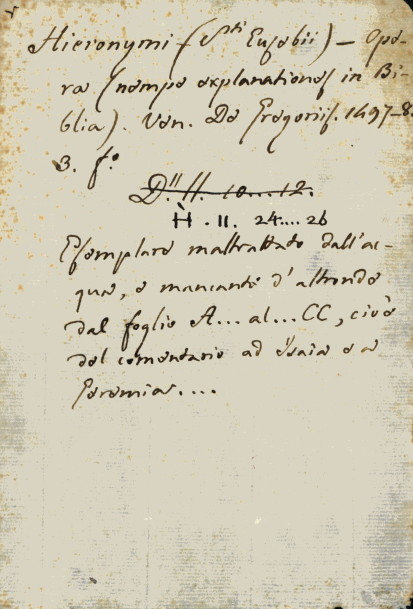 Hieronymi (Sti Eusebii) – Ope-
ra (nempe explanationes in Bi-
blia). Ven. De Gregoriis. 1497-8.
3. f.o
D." II. 10....12.
H̀ . II. 24....26
Esemplare maltrattato dall'ac-
qua, e mancante d'altronde
dal foglio A... al... CC, cioè
del comentario ad Isaia e a
Geremia....